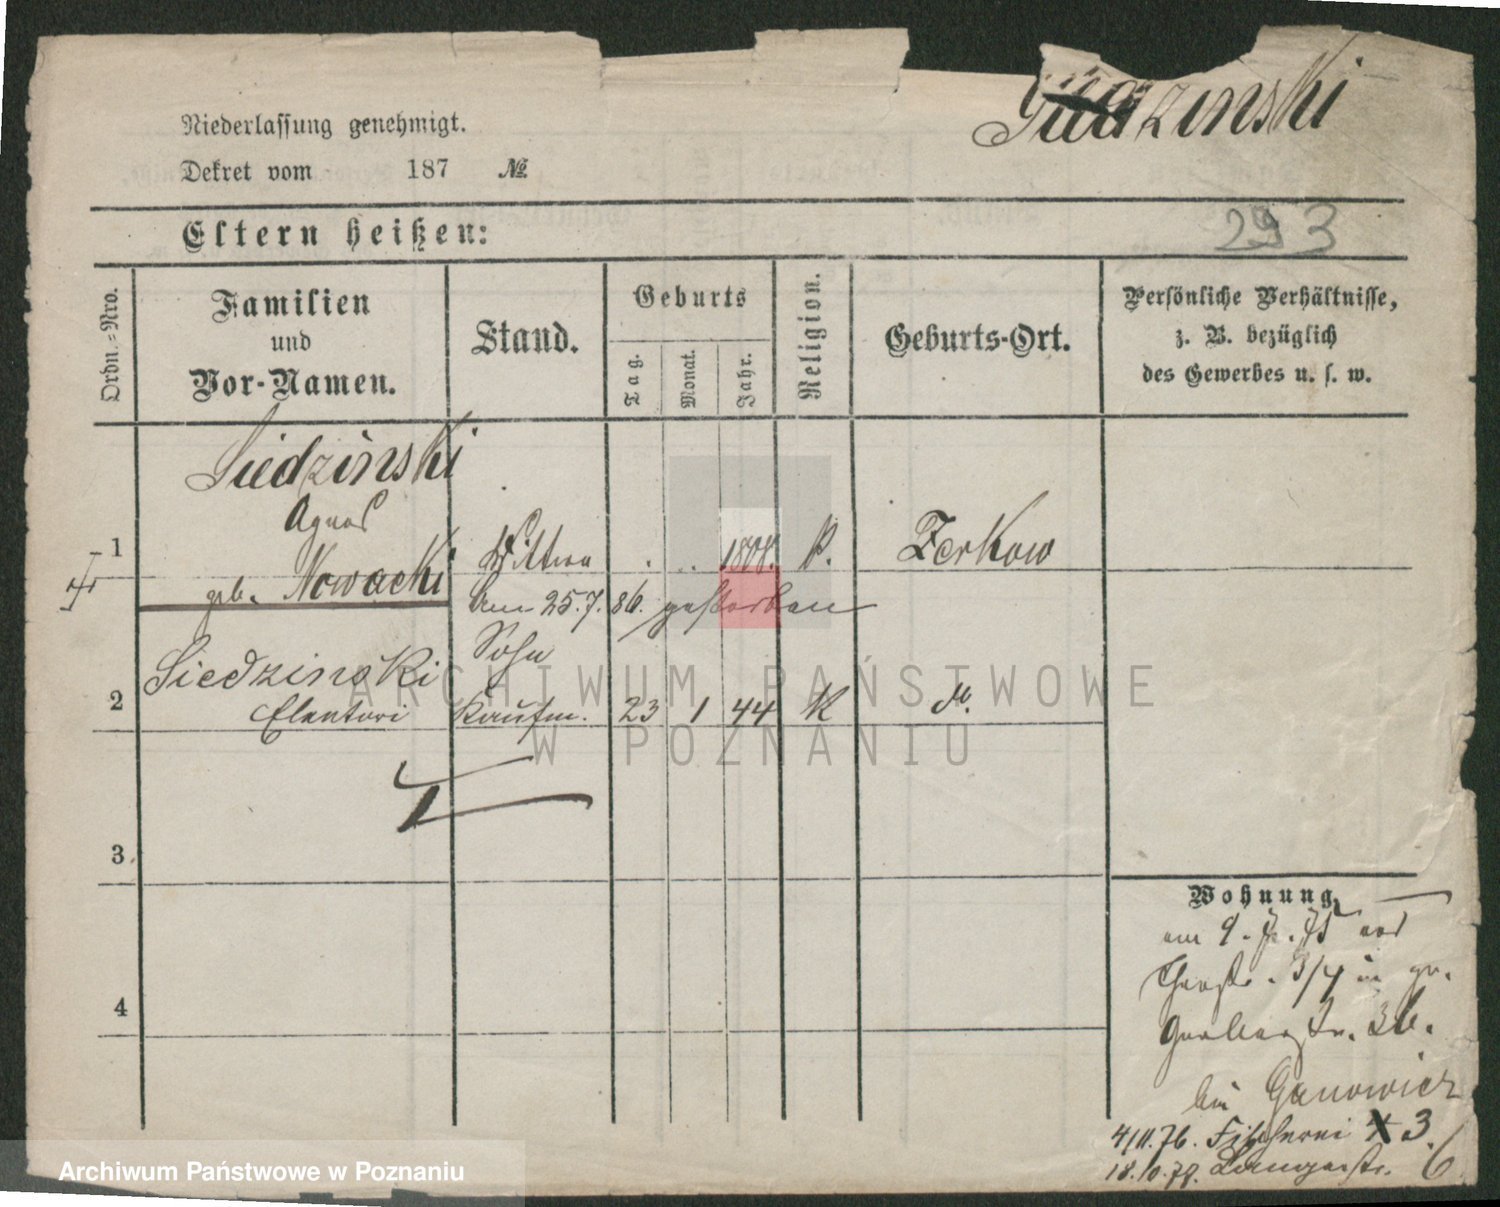 Siedzinski
Niederlassung genehmigt.
Dekret vom 187 №
Eltern heißen:
293
Ordn.-Nro.
Familien
und
Vor-Namen.
Stand.
Geburts
Tag.
Monat.
Jahr.
Religion.
Geburts-Ort.
Persönliche Verhältnisse,
z. B. bezüglich
des Gewerbes u. s. w.
Siedzinski
Agnes
1 Wittwe 1808. K. Zerkow
geb. Nowacki
am 25.7.86. gestorben
Siedzinski Sohn
2 Kaufm. 23 1 44 K do.
3.
4
Wohnung
am 9. 75
3/4 in gr.
Gerberstr. 36.
bei Ganowicz
4/11.76. Fischerei 3.
18.10.78. Langestr. 6
ARCHIWUM PAŃSTWOWE
W POZNANIU
Archiwum Państwowe w Poznaniu